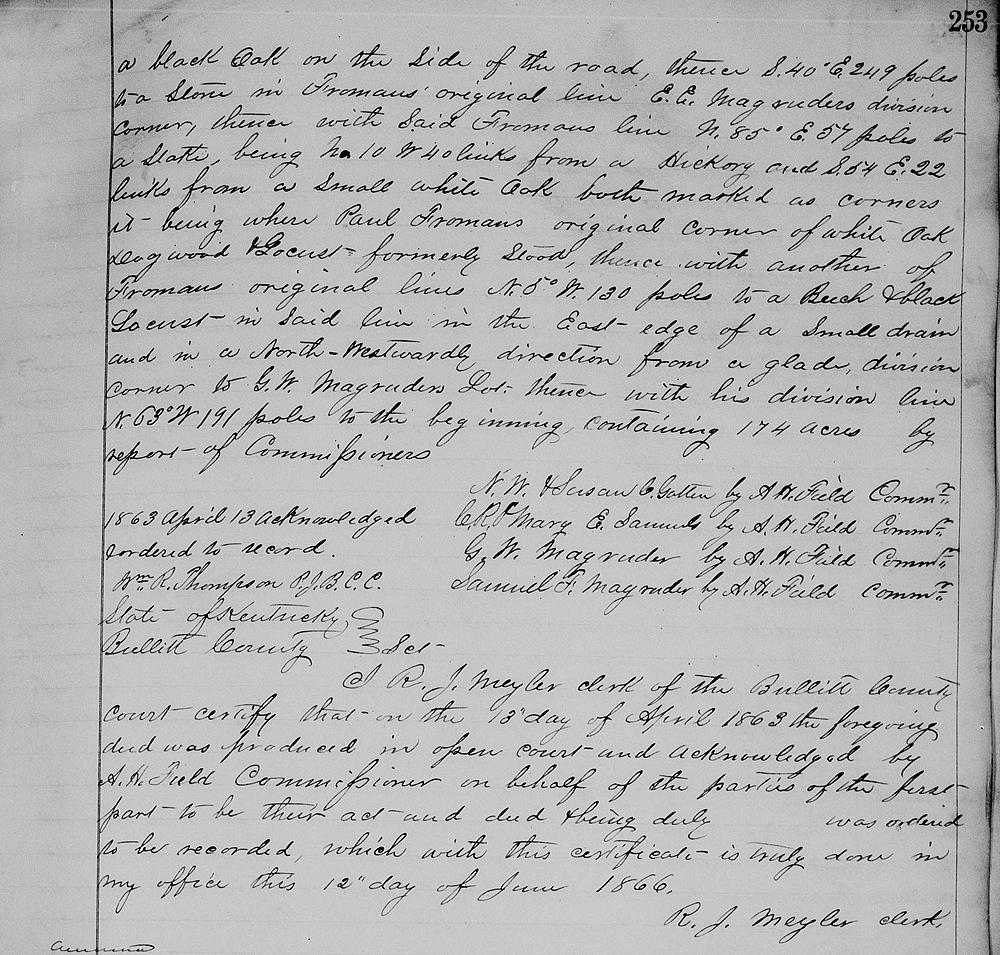 253
a black Oak on the Side of the road, thence S. 40° E. 249 poles
to a Stone in Fromans' original line E. E. Magruders division
corner, thence with Said Fromans line N. 85° E. 57 poles to
a Stake, being No. 10 W 40 links from a Hickory and S. 54 E. 22
links from a Small white Oak both marked as corners
it being where Paul Fromans original corner of white Oak
Dogwood & Locust formerly Stood, thence with another of
Fromans original lines N. 5° W. 130 poles to a Beech & black
Locust in Said line in the East edge of a Small drain
and in a North-Westwardly direction from a glade, division
corner to G. W. Magruders Lot thence with his division line
N. 63° W 191 poles to the beginning, containing 174 acres by
report of Commissioners
N. W. & Susan C. Gatten by A. H. Field Commr.
1863 April 13 acknowledged
C. R. & Mary E. Samuels by A. H. Field Commr.
& ordered to record.
G. W. Magruder by A. H. Field Commr.
Wm. R. Thompson P. J. B. C. C.
Samuel F. Magruder by A. H. Field Commr.
State of Kentucky
Bullitt County Sct
I R. J. Meyler clerk of the Bullitt County
court certify that on the 13" day of April 1863 the foregoing
deed was produced in open court and acknowledged by
A. H. Field Commissioner on behalf of the parties of the first
part to be their act and deed & being duly was ordered
to be recorded, which with this certificate is truly done in
my office this 12" day of June 1866.
R. J. Meyler clerk.